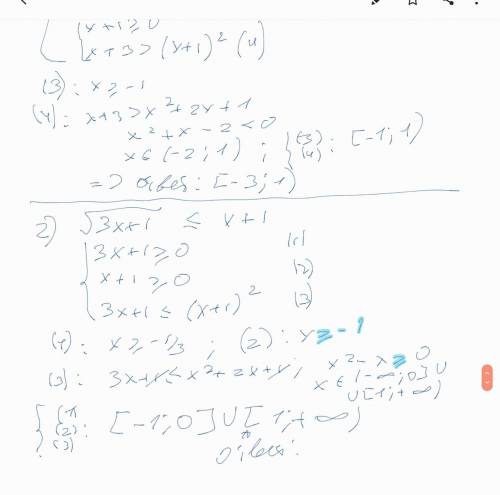 x+1≥0
x+3>(x+1)² (4)
(3): x≥-1
(4): x+3>x²+2x+1
x²+x-2<0
x∈(-2;1) ; { (3) (4) : [-1;1)
=> Ответ: [-3;1)
2) √3x+1 ≤ x+1
{ 3x+1≥0 (1)
x+1≥0 (2)
3x+1≤(x+1)² (3)
(1): x≥-1/3 ; (2): x≥-1
(3): 3x+1≤x²+2x+1; x²-x≥0
x∈(-∞;0]∪
∪[1;+∞)
{ (1) (2) (3) : [-1;0]∪[1;+∞)
Ответ: